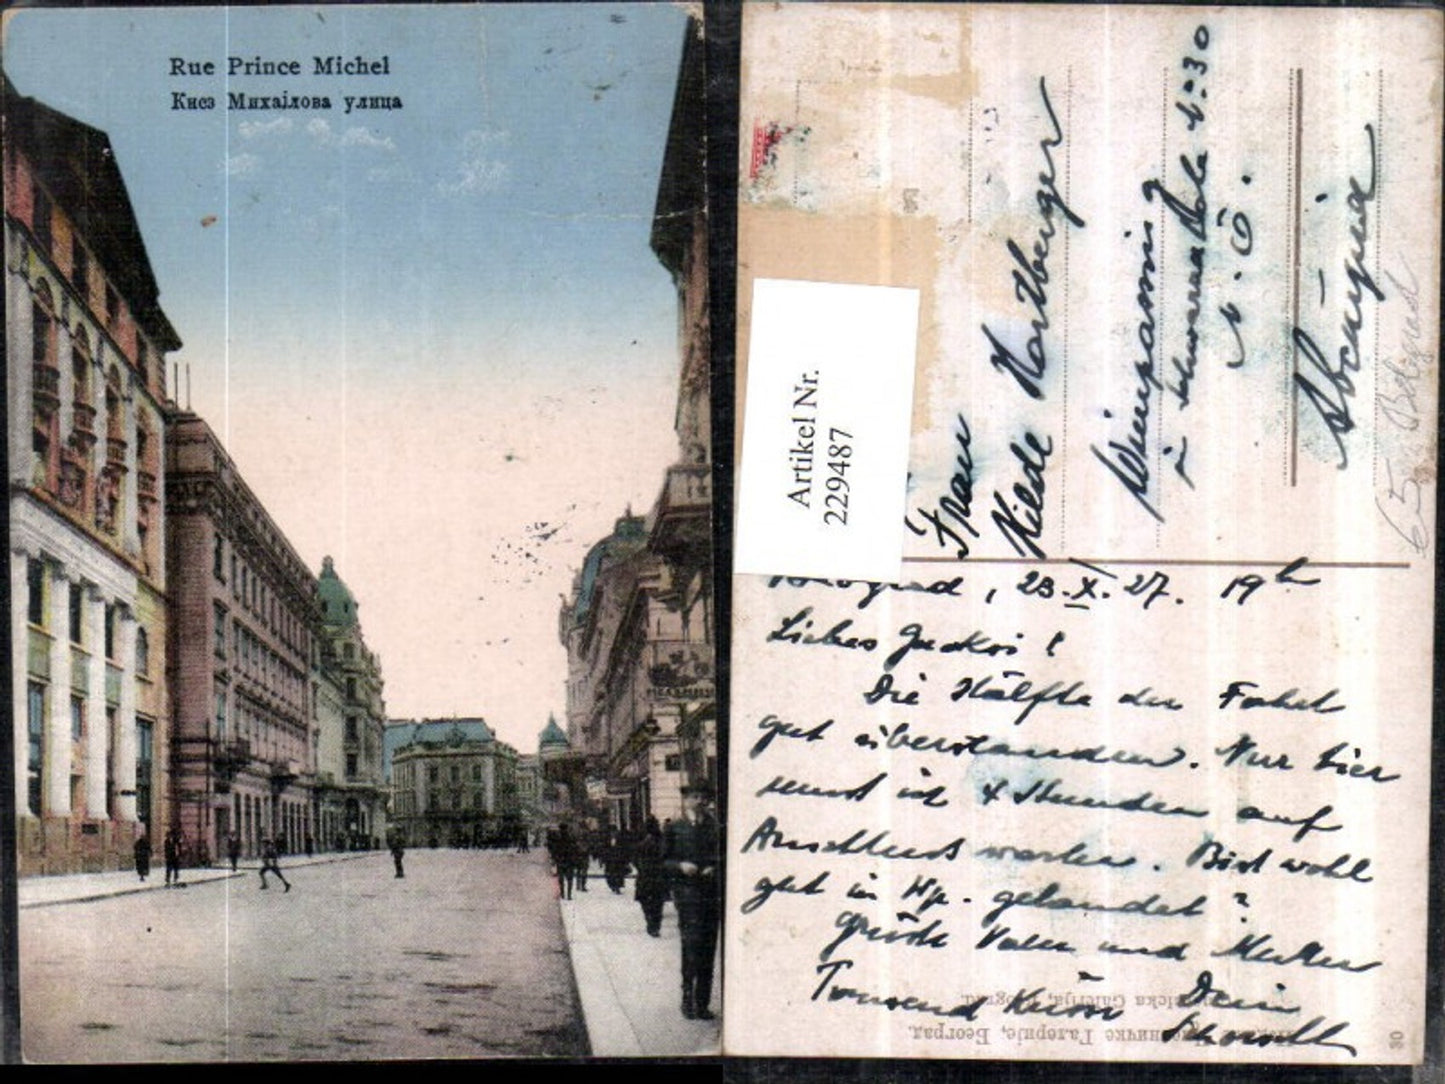 Rue Prince Michel
Кнез Михаjлова улица
Artikel Nr.
229487
Frau
Hilde Hartberger
Wimpassing
in Schwarzatale No 30
N.Ö.
Austria
65 Belgrad
Beograd, 23.X.27. 19h
Liebes
Die Hälfte der Fahrt
gut überstanden. Nur hier
muß ich 4 Stunden auf
Anschluß warten. Bist wohl
gut in Wp. gelandet?
Grüße Vater und Mutter
Tausend Küsse Dein
Galerija, Beograd.
Галерије, Београд.
30